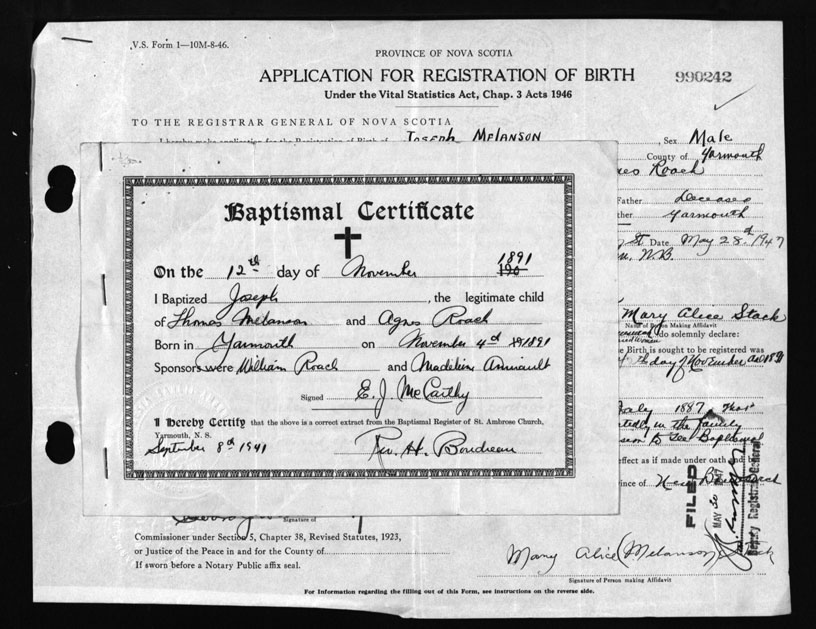 V.S. Form 1—10M-8-46.
PROVINCE OF NOVA SCOTIA
APPLICATION FOR REGISTRATION OF BIRTH
990242
Under the Vital Statistics Act, Chap. 3 Acts 1946
TO THE REGISTRAR GENERAL OF NOVA SCOTIA
I hereby make application for the Registration of Birth of Joseph Melanson, Sex Male
County of Yarmouth
Roach
Father deceased
Yarmouth
St. Date May 28 1947
N.B.
Baptismal Certificate
On the 12th day of November 1891 190
I Baptized Joseph, the legitimate child
of Thomas Melanson and Agnes Roach
Born in Yarmouth on November 4 1891
Sponsors were William Roach and Madeleine
Signed E. J. McCarthy
I Hereby Certify that the above is a correct extract from the Baptismal Register of St. Ambrose Church,
Yarmouth, N. S.
September 8 1941 Rev. H. Boudreau
Mary Alice Stack
Name of Person Making Affidavit
do solemnly declare:
Birth is sought to be registered was
day of November 1891
1887
in the family
effect as if made under oath and
FILED
MAY 30
Deputy Registrar General
Signature of
Commissioner under Section 5, Chapter 38, Revised Statutes, 1923,
or Justice of the Peace in and for the County of
If sworn before a Notary Public affix seal.
Mary Alice (Melanson) Stack
Signature of Person making Affidavit
For Information regarding the filling out of this Form, see instructions on the reverse side.